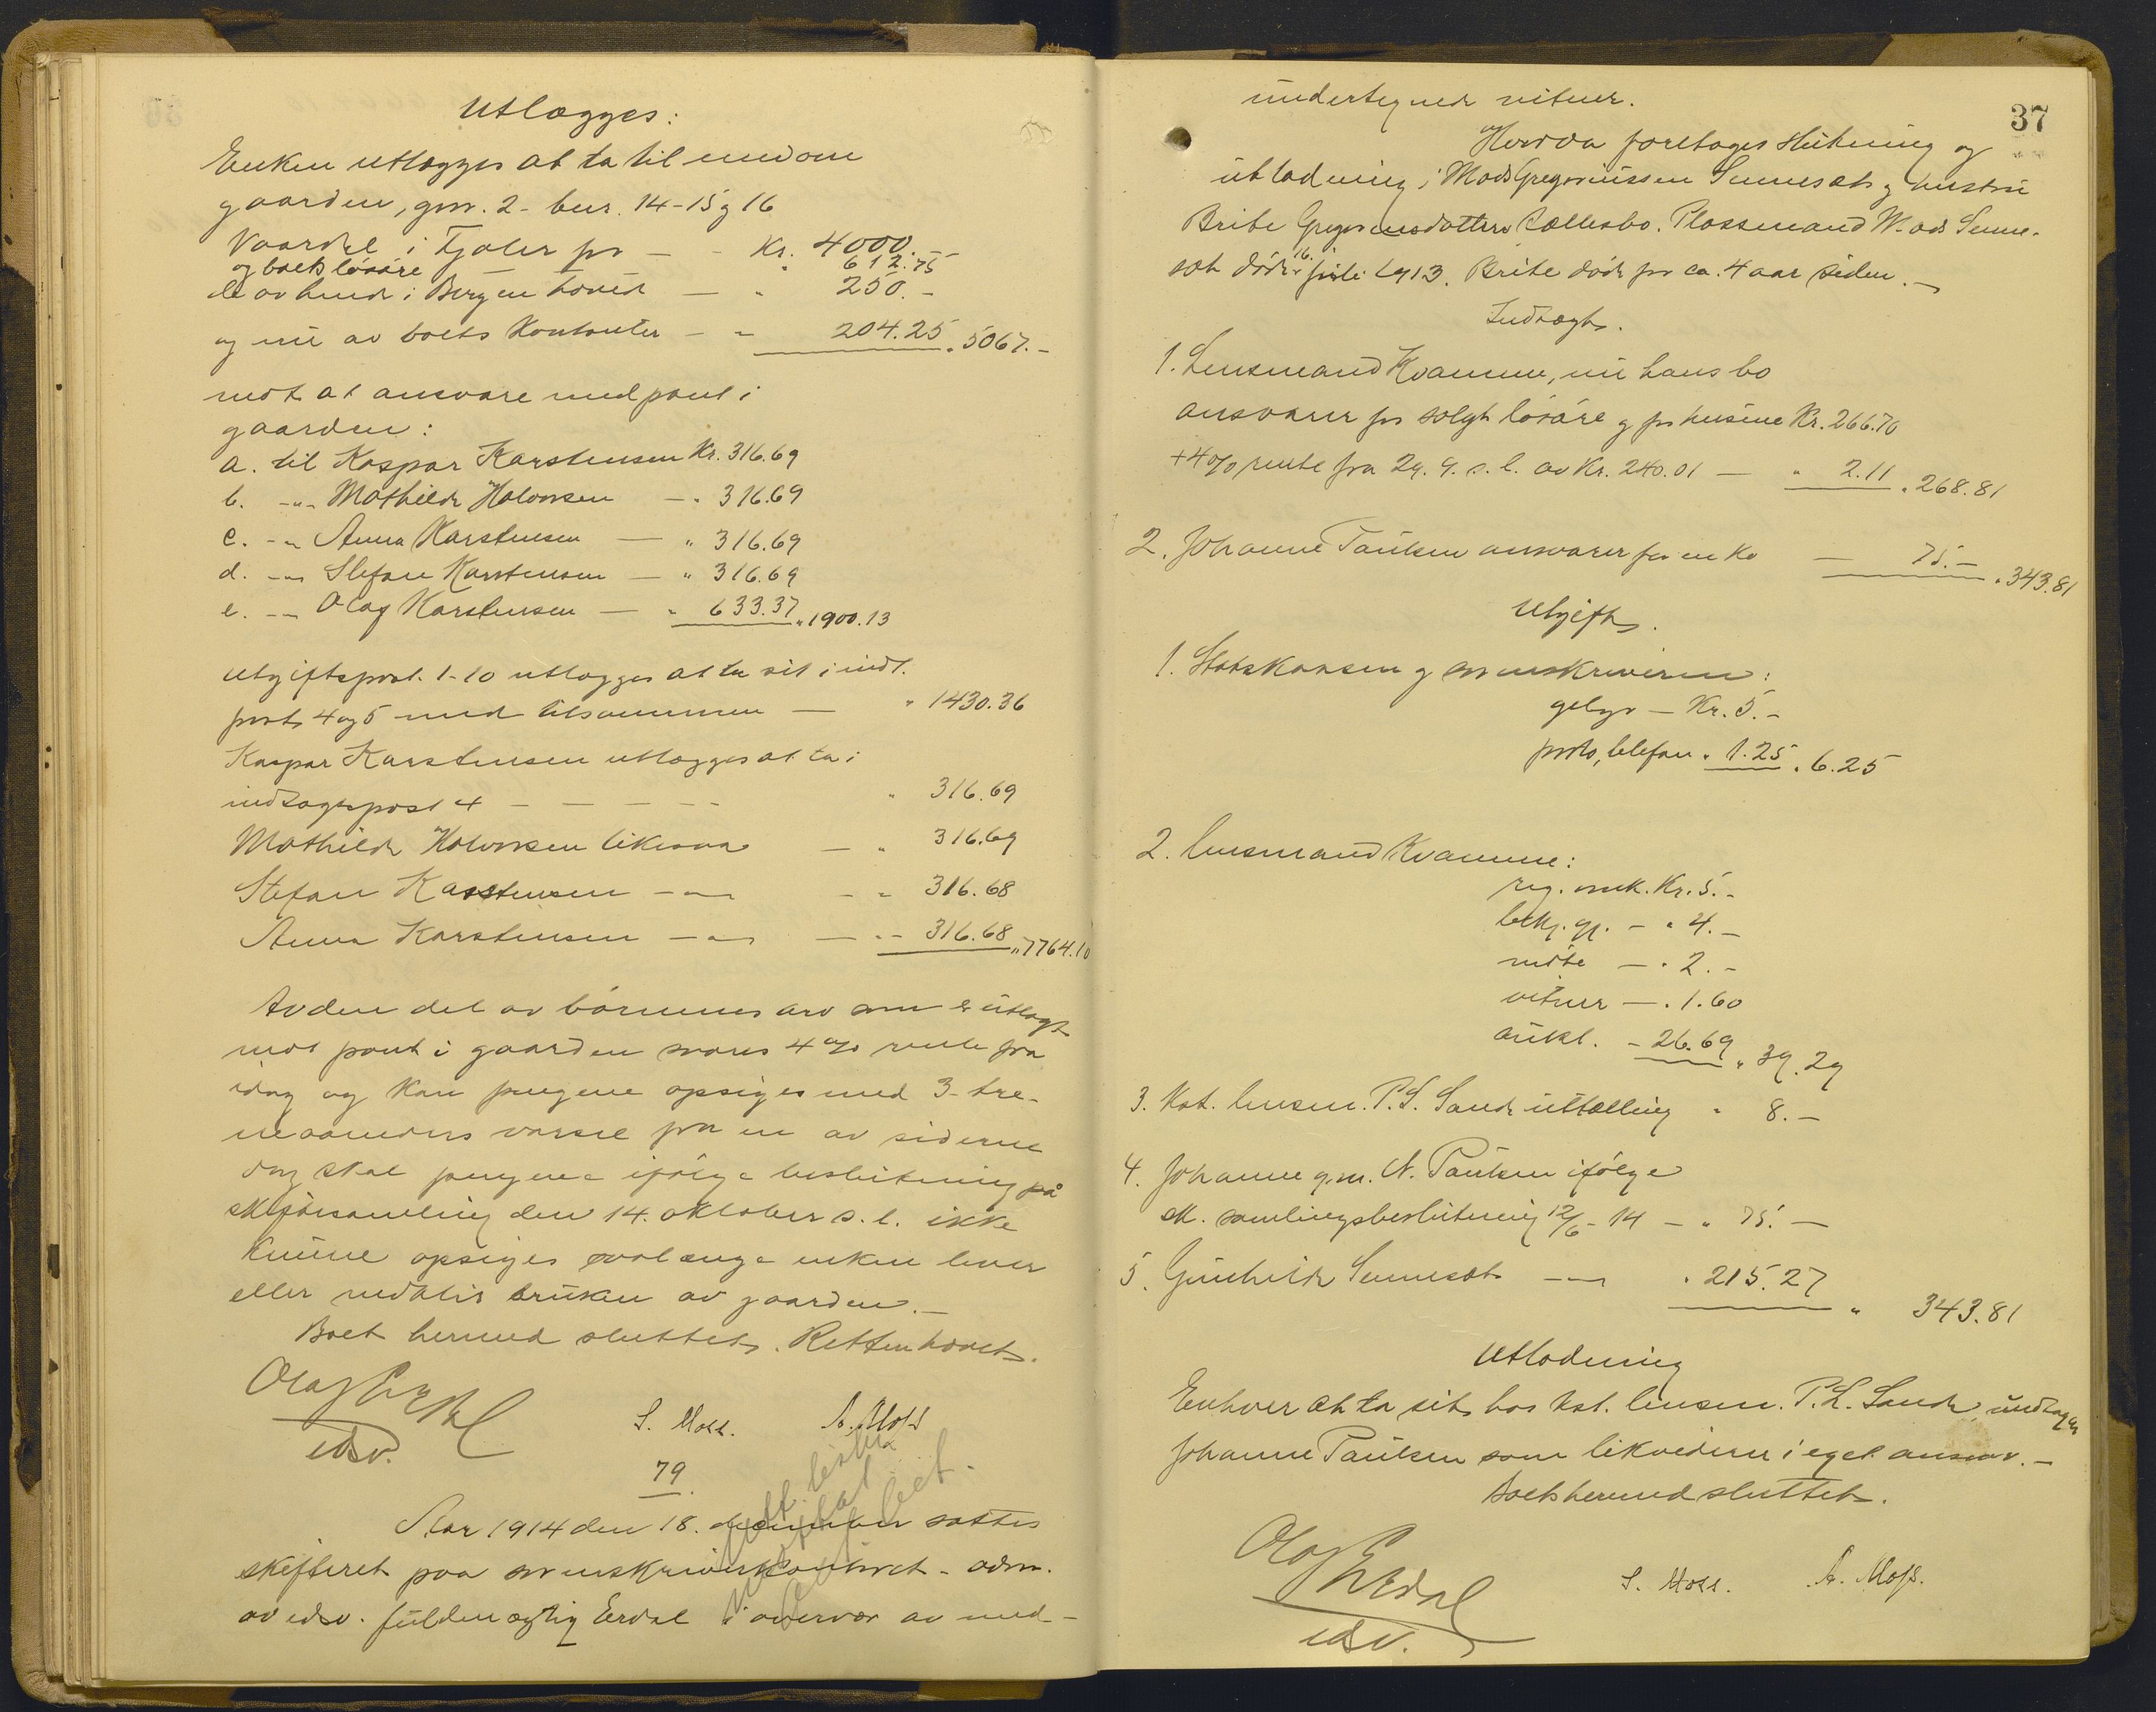 Utlægges:
Enken utlægges at ta til eiendom
gaarden, gnr. 2 - bnr. 14 - 15 og 16
Vaardal i Fjaler for - - Kr. 4000.-
og boets løsøre " 612.75
de av hende i Bergen hævede - " 250.-
og nu av boets Kontanter - " 204.25 " 5067.-
mot at ansvare med pant i
gaarden:
a. til Kaspar Karstensen Kr. 316.69
b. -"- Mathilde Halvorsen - " 316.69
c. -"- Anna Karstensen - " 316.69
d. -"- Stefan Karstensen - " 316.69
e. -"- Olag Karstensen - " 633.37 " 1900.13
Utgiftspost. 1-10 utlægges at ta sit i indt.
post 4 og 5 med tilsammen - " 1430.36
Kaspar Karstensen utlægges at ta i
indtægtspost 4 - - - - " 316.69
Mathilde Halvorsen likesaa - " 316.69
Stefan Karstensen -"- - " 316.68
Anna Karstensen -"- - " 316.68 " 7764.10
Av den del av børnenes arv som er utlagt
mot pant i gaarden svares 4% rente fra
idag og kan pengene opsiges med 3-tre-
maaneders varsel fra en av siderne
dog skal pengene ifølge beslutning på
skiftesamling den 14. oktober s.l. ikke
kunne opsiges saalænge enken lever
eller vedblir bruken av gaarden.-
Boet hermed sluttet. Retten hævet.
Olaf Erdal
edsv.
S. Moss. A. Moss
79.
Aar 1914 den 18. december sattes
skifteret paa sorenskriverkontoret - adm.
av edsv. fuldmægtig Erdal i overvær av med-
37
undertegnede vitner.
Hvorda foretages slutning og
utlodning i Mads Gregoriussen Sennesets og hustru
Brite Gregoriusdatters fællesbo. Plassmand Mads Senne-
set døde 16. juli 1913. Brite døde for ca. 4 aar siden.-
Indtægt.
1. Lensmand Kvamme, nu hans bo
ansvarer for solgt løsøre og for husene Kr. 266.70
+4% rente fra 29.9. s.l. av Kr. 240.01 - " 2.11 " 268.81
2. Johanne Paulsen ansvarer for en ko - 75.- " 343.81
Utgift.
1. Statskassen og sorenskriveren:
gebyr - Kr. 5.-
porto, telefon " 1.25 " 6.25
2. Lensmand Kvamme:
reg. omk. Kr. 5.-
bekj. gj. - " 4.-
møte - " 2.-
vitner - " 1.60
aukt. - 26.69 " 39.29
3. Kst. lensm. P.L. Sande uttælling " 8.-
4. Johanne g.m. N. Paulsen ifølge
sk. samlingsbeslutning 12/6-14 - " 75.-
5. Gunhilde Senneset -"- " 215.27
" 343.81
Utlodning
Enhver at ta sit hos kst. lensm. P.L. Sande undtagen
Johanne Paulsen som likvederer i eget ansvar.-
Boet hermed sluttet.
Olaf Erdal
edsv.
S. Moss. A. Moss.